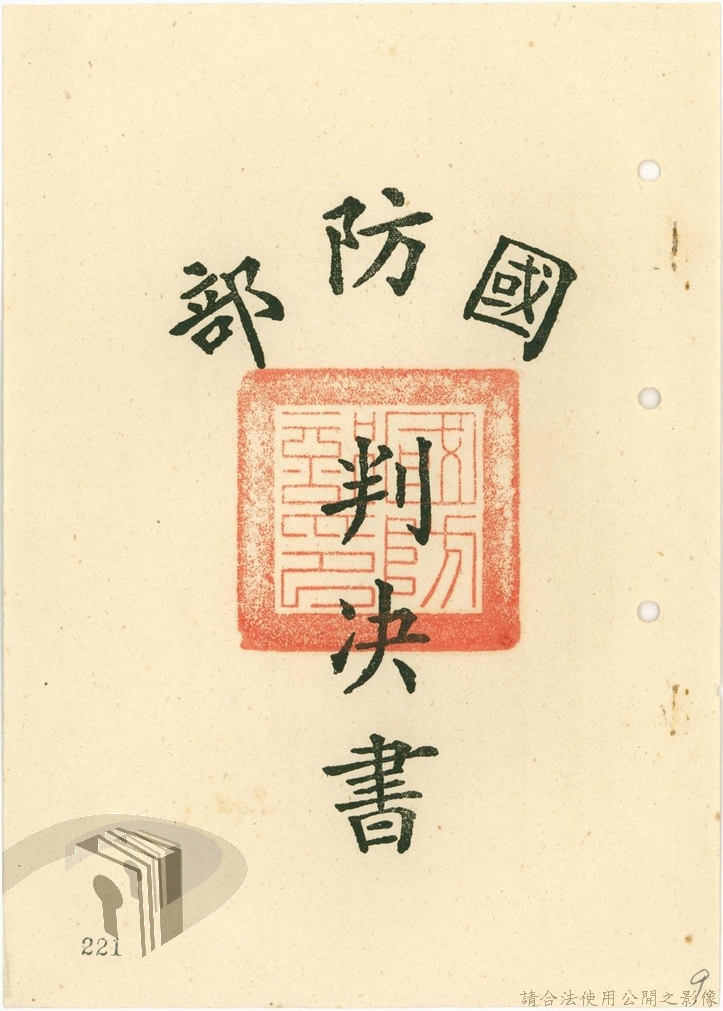 國防部
判決書
國防部印
221
9
請合法使用公開之影像